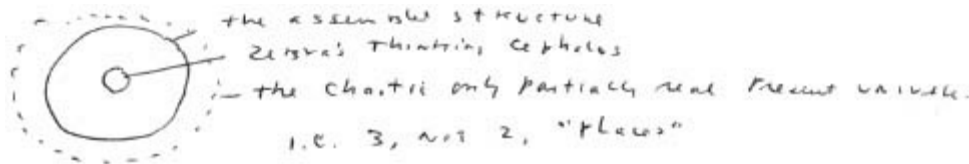 the assembled structure
Zebra's thinking cephalos
the chaotic only partially real present universe.
i.e. 3, not 2, "places"